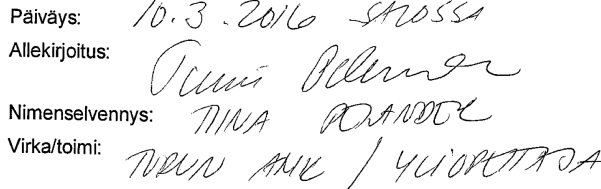 Päiväys: 10.3.2016 SALOSSA
Allekirjoitus:
Nimenselvennys: TIINA
Virka/toimi: TURUN AMK / YLIOPETTAJA